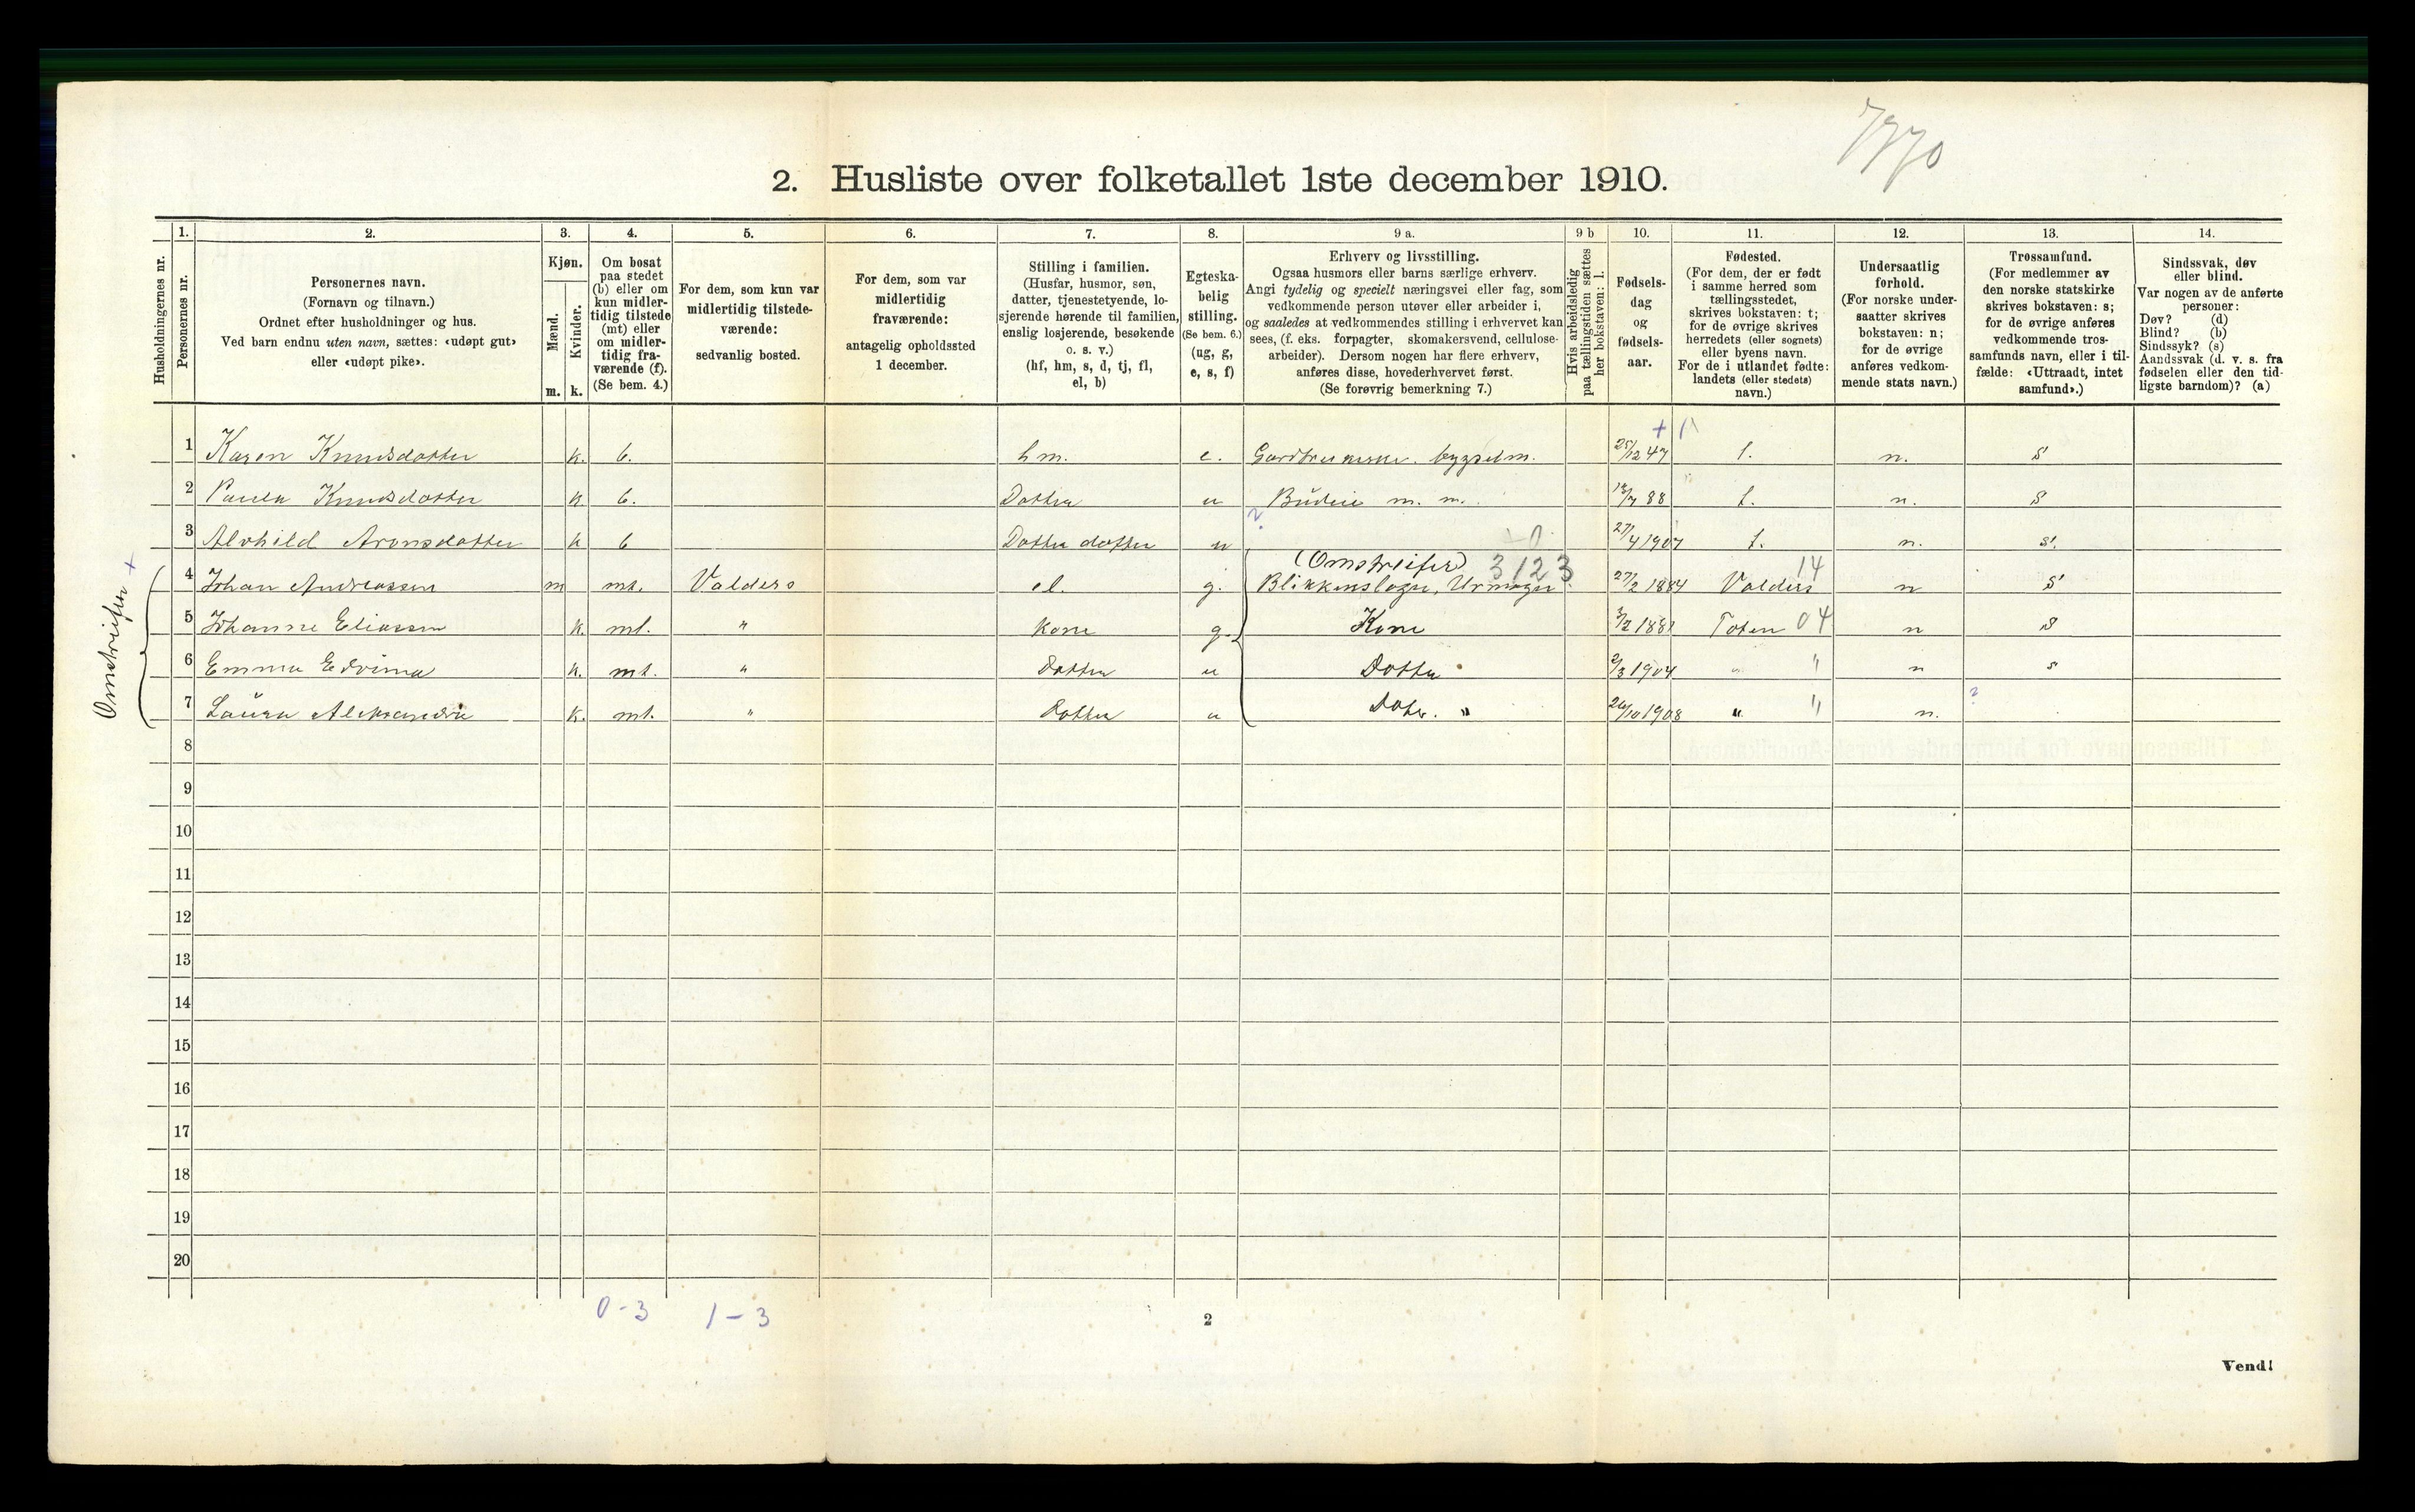 7770
2. Husliste over folketallet 1ste december 1910.
Husholdningernes nr.
1.
Personernes nr.
2.
Personernes navn.
(Fornavn og tilnavn.)
Ordnet efter husholdninger og hus.
Ved barn endnu uten navn, sættes: «udøpt gut»
eller «udøpt pike».
3.
Kjøn.
Mænd.
Kvinder.
m. k.
4.
Om bosat
paa stedet
(b) eller om
kun midler-
tidig tilstede
(mt) eller
om midler-
tidig fra-
værende (f).
(Se bem. 4.)
5.
For dem, som kun var
midlertidig tilstede-
værende:
sedvanlig bosted.
6.
For dem, som var
midlertidig
fraværende:
antagelig opholdssted
1 december.
7.
Stilling i familien.
(Husfar, husmor, søn,
datter, tjenestetyende, lo-
sjerende hørende til familien,
enslig losjerende, besøkende
o. s. v.)
(hf, hm, s, d, tj, fl,
el, b)
8.
Egteska-
belig
stilling.
(Se bem. 6.)
(ug, g,
e, s, f)
9 a.
Erhverv og livsstilling.
Ogsaa husmors eller barns særlige erhverv.
Angi tydelig og specielt næringsvei eller fag, som
vedkommende person utøver eller arbeider i,
og saaledes at vedkommendes stilling i erhvervet kan
sees, (f. eks. forpagter, skomakersvend, cellulose-
arbeider). Dersom nogen har flere erhverv,
anføres disse, hovederhvervet først.
(Se forøvrig bemerkning 7.)
9 b
Hvis arbeidsledig
paa tællingstiden sættes
her bokstaven: l.
10.
Fødsels-
dag
og
fødsels-
aar.
11.
Fødested.
(For dem, der er født
i samme herred som
tællingsstedet,
skrives bokstaven: t;
for de øvrige skrives
herredets (eller sognets)
eller byens navn.
For de i utlandet fødte:
landets (eller stedets)
navn.)
12.
Undersaatlig
forhold.
(For norske under-
saatter skrives
bokstaven: n;
for de øvrige
anføres vedkom-
mende stats navn.)
13.
Trossamfund.
(For medlemmer av
den norske statskirke
skrives bokstaven: s;
for de øvrige anføres
vedkommende tros-
samfunds navn, eller i til-
fælde: «Uttraadt, intet
samfund».)
14.
Sindssvak, døv
eller blind.
Var nogen av de anførte
personer:
Døv? (d)
Blind? (b)
Sindssyk? (s)
Aandssvak (d. v. s. fra
fødselen eller den tid-
ligste barndom)? (a)
1 Karen Knudsdatter k. b. hm. e. bygselm. 25/12 47 t. n. s
2 Paula Knudsdatter k b. Datter u Budeie m. m. 88 t. n. s
3 Alvhild Aronsdatter k b Datter datter u 27/4 1907 t. n. s.
(Omstreifer) 3123 14
4 Johan Andreassen m mt. Valders el. g. Blikkenslager, Urmager 27/2 1884 Valders n s
5 Johanne Eliassen k. mt. " kone g. Kone 3/2 1881 Toten 04 n s
6 Emma Edvina k. mt. " Datter u Datter 2/3 1904 " " n s
7 Laura Aleksandra k. mt. " Datter u Dater. " 26/10 1908 " " n. ?
Omstreifer +
8
9
10
11
12
13
14
15
16
17
18
19
20
0-3 1-3
2
Vend!